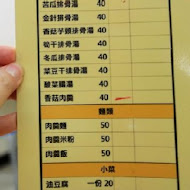 苦瓜排骨湯 40
金針排骨湯 40
香菇芋頭排骨湯 40
筍干排骨湯 40
冬瓜排骨湯 40
菜豆干排骨湯 40
酸菜腸湯 40
香菇肉羹 40
麵類
肉羹麵 50
肉羹米粉 50
肉羹飯 50
小菜
油豆腐 一份 20